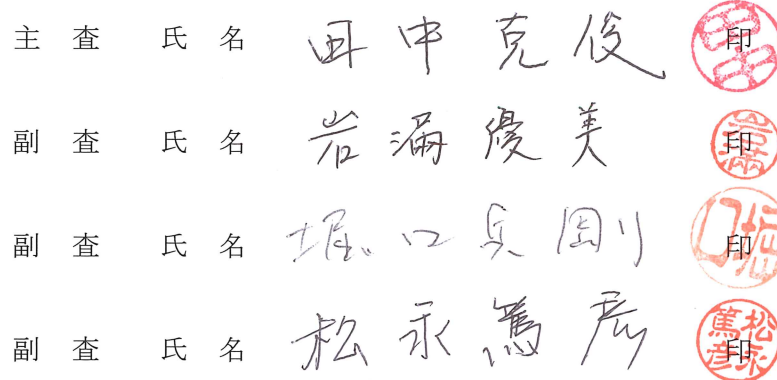 主査 氏名 田中克俊 印
副査 氏名 岩満優美 印
副査 氏名 堀口兵剛 印
副査 氏名 松永篤彦 印